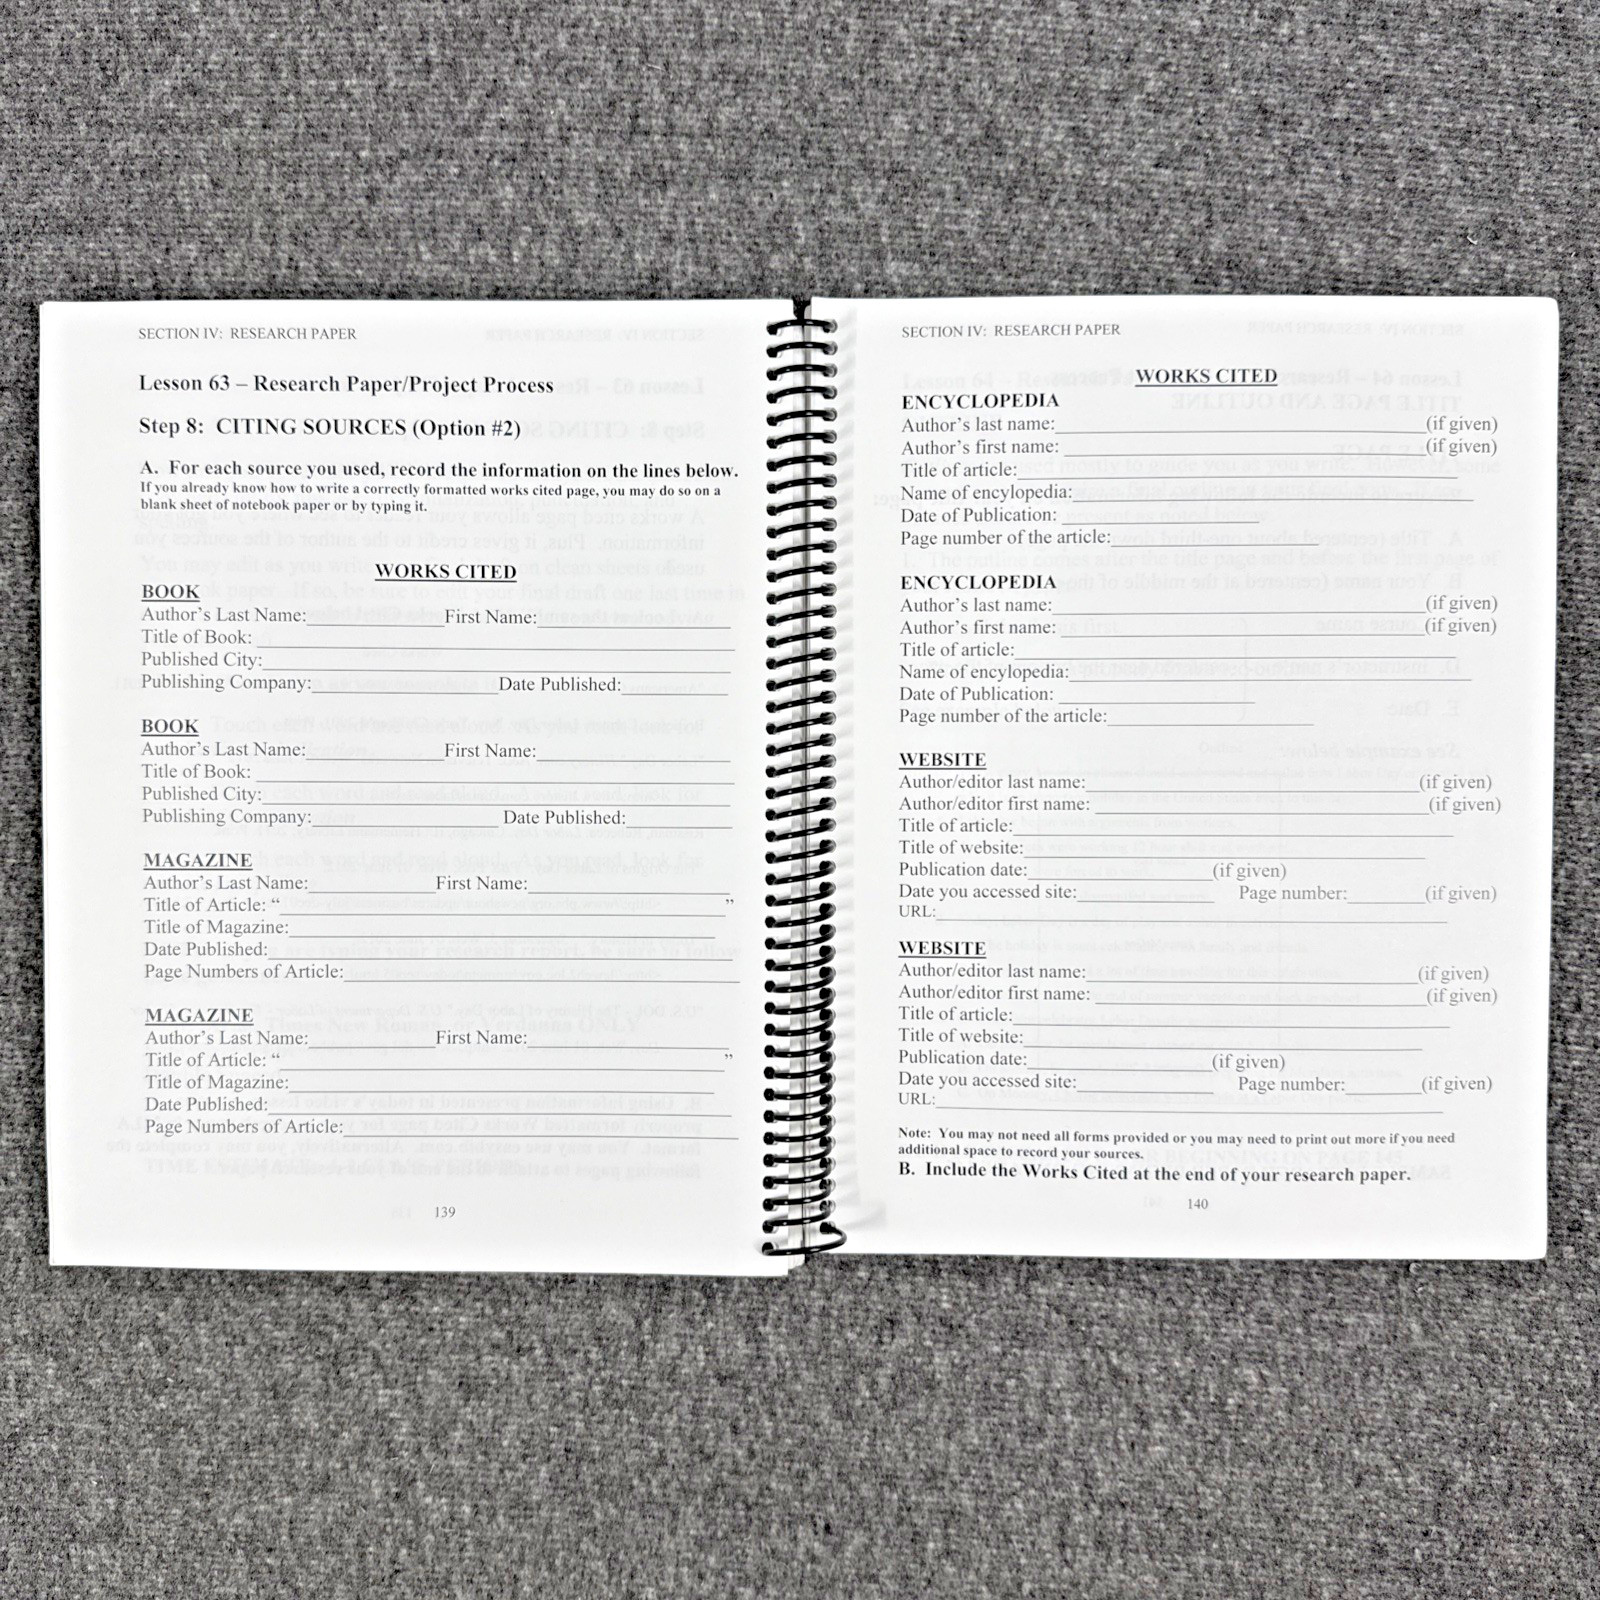 SECTION IV: RESEARCH PAPER
Lesson 63 – Research Paper/Project Process
Step 8: CITING SOURCES (Option #2)
A. For each source you used, record the information on the lines below.
If you already know how to write a correctly formatted works cited page, you may do so on a
blank sheet of notebook paper or by typing it.
WORKS CITED
BOOK
Author's Last Name: First Name:
Title of Book:
Published City:
Publishing Company: Date Published:
BOOK
Author's Last Name: First Name:
Title of Book:
Published City:
Publishing Company: Date Published:
MAGAZINE
Author's Last Name: First Name:
Title of Article: “ ”
Title of Magazine:
Date Published:
Page Numbers of Article:
MAGAZINE
Author's Last Name: First Name:
Title of Article: “ ”
Title of Magazine:
Date Published:
Page Numbers of Article:
139
SECTION IV: RESEARCH PAPER
WORKS CITED
ENCYCLOPEDIA
Author's last name: (if given)
Author's first name: (if given)
Title of article:
Name of encylopedia:
Date of Publication:
Page number of the article:
ENCYCLOPEDIA
Author's last name: (if given)
Author's first name: (if given)
Title of article:
Name of encylopedia:
Date of Publication:
Page number of the article:
WEBSITE
Author/editor last name: (if given)
Author/editor first name: (if given)
Title of article:
Title of website:
Publication date: (if given)
Date you accessed site: Page number: (if given)
URL:
WEBSITE
Author/editor last name: (if given)
Author/editor first name: (if given)
Title of article:
Title of website:
Publication date: (if given)
Date you accessed site: Page number: (if given)
URL:
Note: You may not need all forms provided or you may need to print out more if you need
additional space to record your sources.
B. Include the Works Cited at the end of your research paper.
140